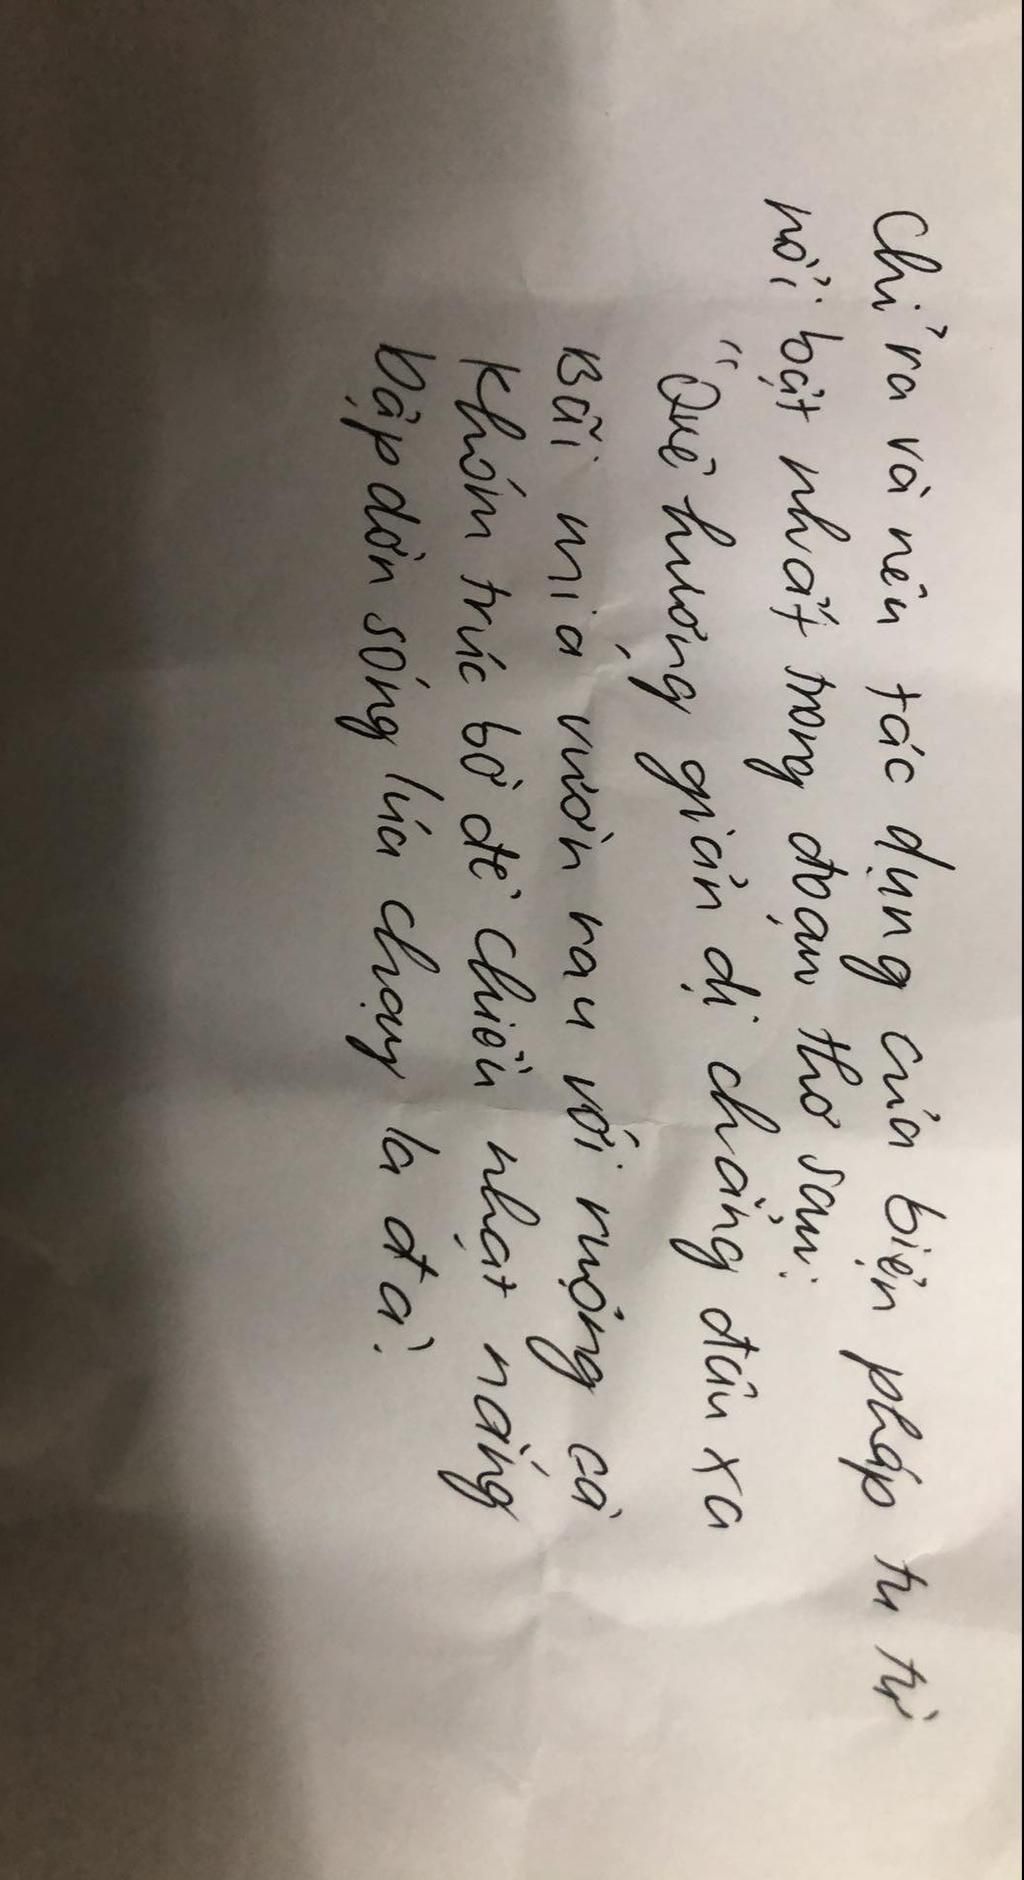 Chỉ ra và nêu tác dụng của biện pháp tu từ
nổi bật nhất trong đoạn thơ sau:
"Quê hương giản dị chẳng đâu xa
Bãi mía vườn rau với ruộng cà
Khóm trúc bờ đê chiều nhạt nắng
Dập dờn sóng lúa chạy la đà.